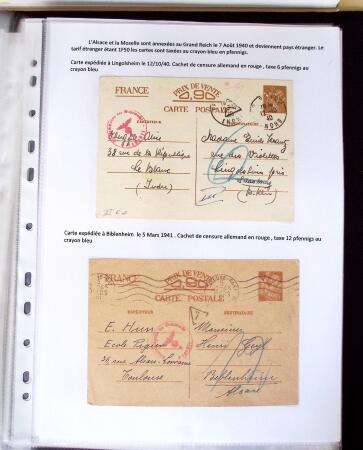 L'Alsace et la Moselle sont annexées au Grand Reich le 7 Août 1940 et deviennent pays étranger. Le
tarif étranger étant 1F50 les cartes sont taxées au crayon bleu en pfennigs.
Carte expédiée à Lingolsheim le 12/10/40. Cachet de censure allemand en rouge , taxe 6 pfennigs au
crayon bleu
FRANCE
PRIX DE VENTE
0,90
CARTE POSTALE
EXPÉDITEUR
DESTINATAIRE
38 rue de la République
Le Blanc
(Indre)
Madame
rue des Violettes
Lingolsheim près
Strasbourg
Carte expédiée à Biblenheim le 5 Mars 1941 . Cachet de censure allemand en rouge , taxe 12 pfennigs au
crayon bleu
FRANCE
PRIX DE VENTE
0,90
CARTE POSTALE
EXPÉDITEUR
DESTINATAIRE
E. Huss
Monsieur
Ecole
Henri
28 rue Alsace-Lorraine
Biblenheim
Toulouse
Alsace